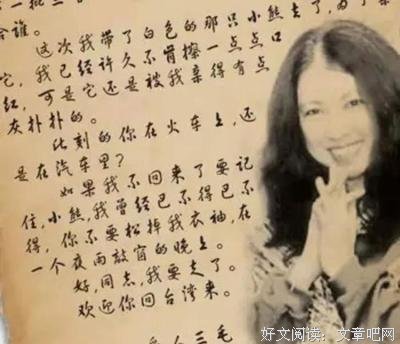 一批三
谁。
这次我带了白色的那只小熊去了,为了亲
它,我已经许久不肯擦一点点口
红,可是它还是被我亲得有点
灰扑扑的。
此刻的你在火车上,还
是在汽车里?
如果我不回来了要记
住,小熊,我曾经已不得已不
得,你不要松掉我衣袖,在
一个夜雨敲窗的晚上。
好,同志,我要走了。
欢迎你回台湾来。
人三毛
好文阅读:文章吧网